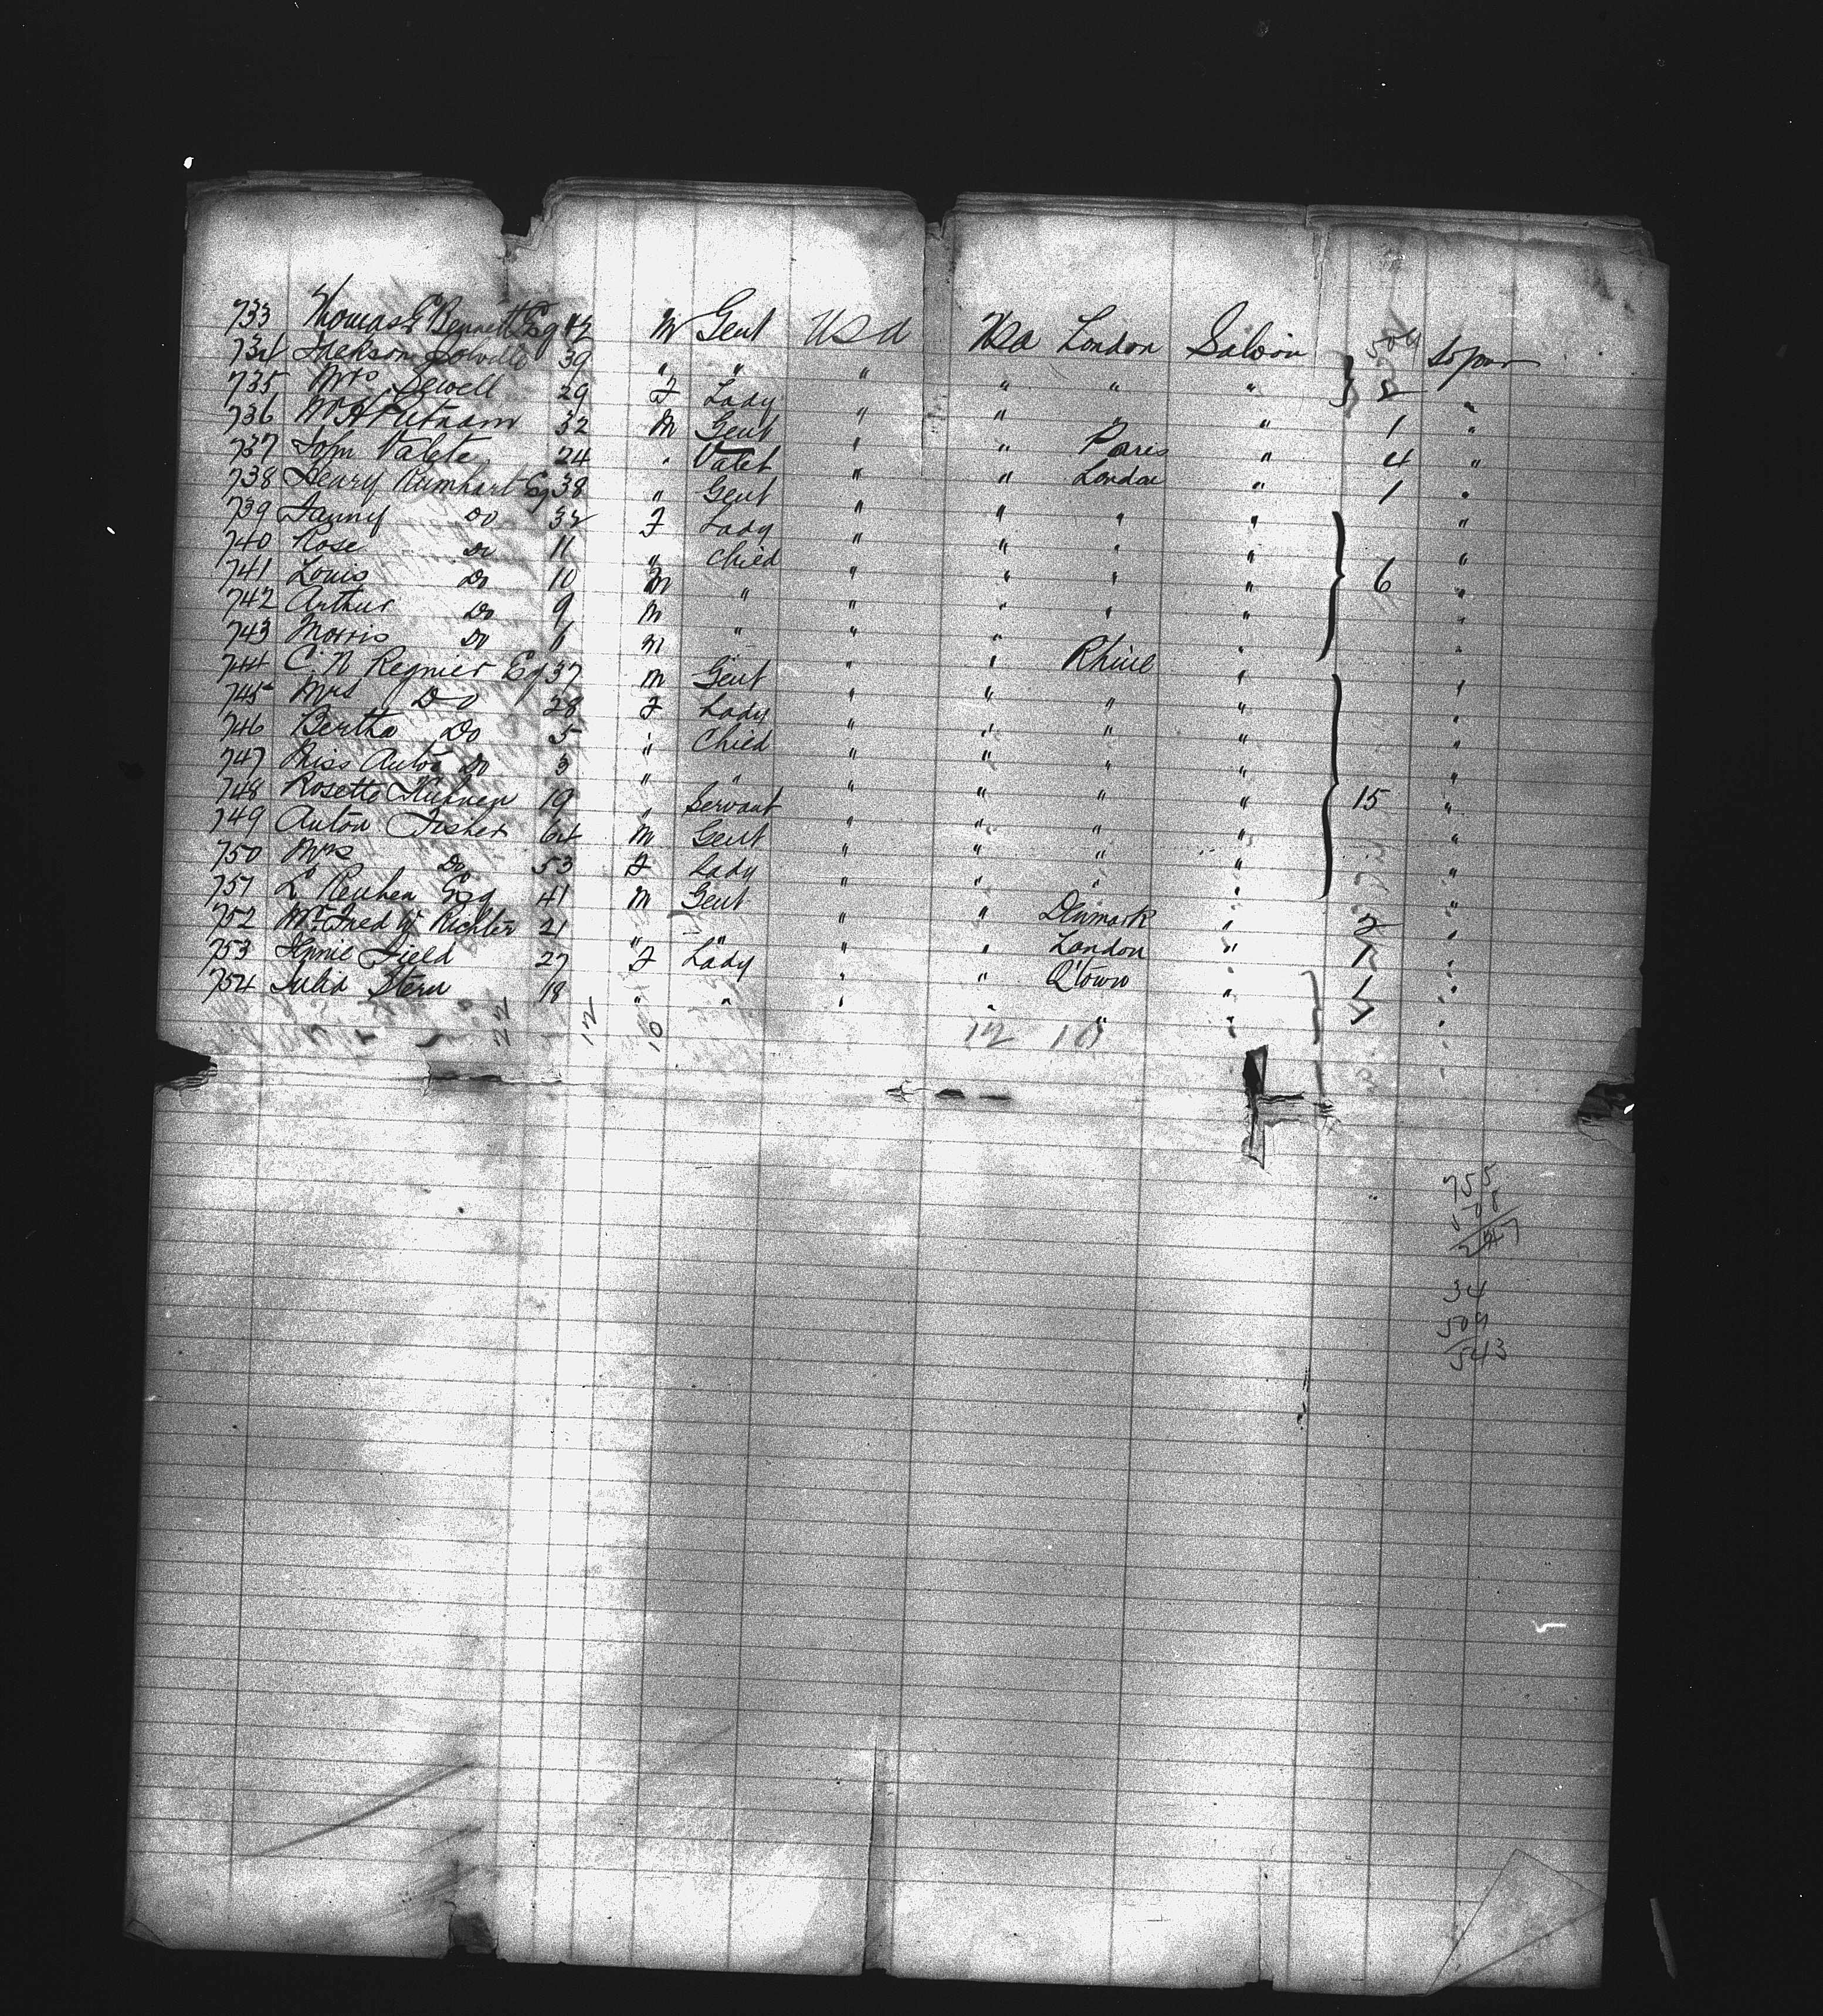 733 Thomas E Bennett Esq 42 M Gent USA USA London Saloon
734 Jackson 39 " " " " " " 2 "
735 Mrs Sewell 29 F Lady " " " " 1 "
736 W H Putnam 32 M Gent " " Paris " 4 "
737 John Valete 24 " Valet " " London " 1 "
738 Henry Rumhart Esq 38 " Gent " " " " "
739 Fanny Do 32 F Lady " " " " "
740 Rose Do 11 " Child " " " " "
741 Louis Do 10 M " " " " " 6 "
742 Arthur Do 9 M " " " " "
743 Morris Do M " " " Rhine " "
744 C. N Regnier Esq 37 M Gent " " " " "
745 Mrs Do 28 F Lady " " " " "
746 Bertha Do 5 " Child " " " " "
747 Miss Anton Do 3 " " " " " " "
748 Rosetto 19 " Servant " " " " 15 "
749 Anton Fisher 64 M Gent " " " " "
750 Mrs Do 53 F Lady " " " " "
751 L Reuhen Esq 41 M Gent " " Denmark " 2 "
752 Mr Fred W Richter 21 " " " " London " 1 "
753 Jennie Field 27 F Lady " " Q'town " 1 "
754 Julia Stern 18 " " " " " " "
22 12 10 12 10
755
508
247
34
509
543